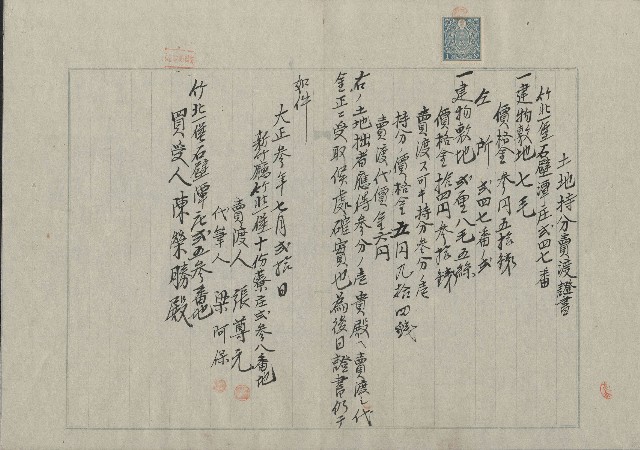 土地持分賣渡證書
竹北一堡石壁潭庄弍四七番
一建物敷地七毛
價格金参円五拾銭
仝所弍四七番ノ弍
一建物敷地弍厘八毛五絲
價格金拾四円参拾銭
賣渡ス可キ持分参分ノ壱
持分ノ價格金五円九拾四銭
賣渡代價金六円
右ノ土地拙者應得参分ノ壱貴殿ヘ賣渡シ代
金正ニ受取候處確實也為後日證書仍テ
如件
大正参年七月弍拾日
新竹廳竹北一堡十份藔庄弍参八番地
賣渡人張尊元
代筆人梁阿保
竹北一堡石壁潭庄弍五参番地
買受人陳榮勝殿